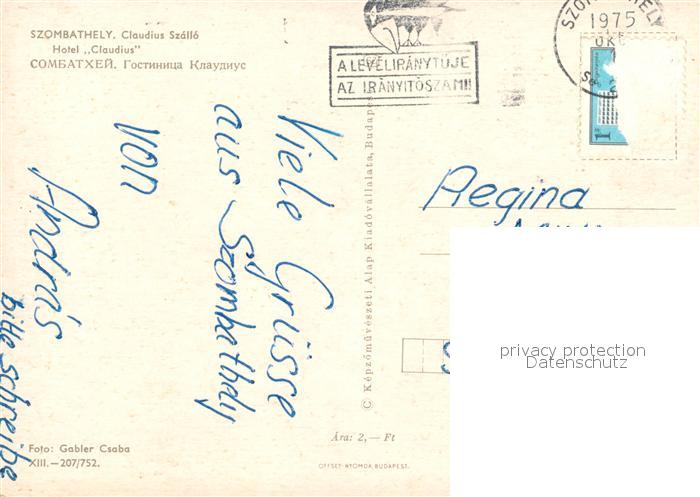 SZOMBATHELY. Claudius Szálló
Hotel „Claudius"
СОМБАТХЕЙ. Гостиница Клаудиус
A LEVÉL IRÁNYTŰJE
AZ IRÁNYÍTÓSZÁM!!
SZOMBATHELY
1975
OKT
1 Ft
Viele Grüsse
aus Szombathely
von
András
bitte schreibe
© Képzőművészeti Alap Kiadóvállalata, Budapest
Regina
privacy protection
Datenschutz
Ára: 2,— Ft
Foto: Gabler Csaba
XIII.—207/752.
OFFSET-NYOMDA, BUDAPEST.